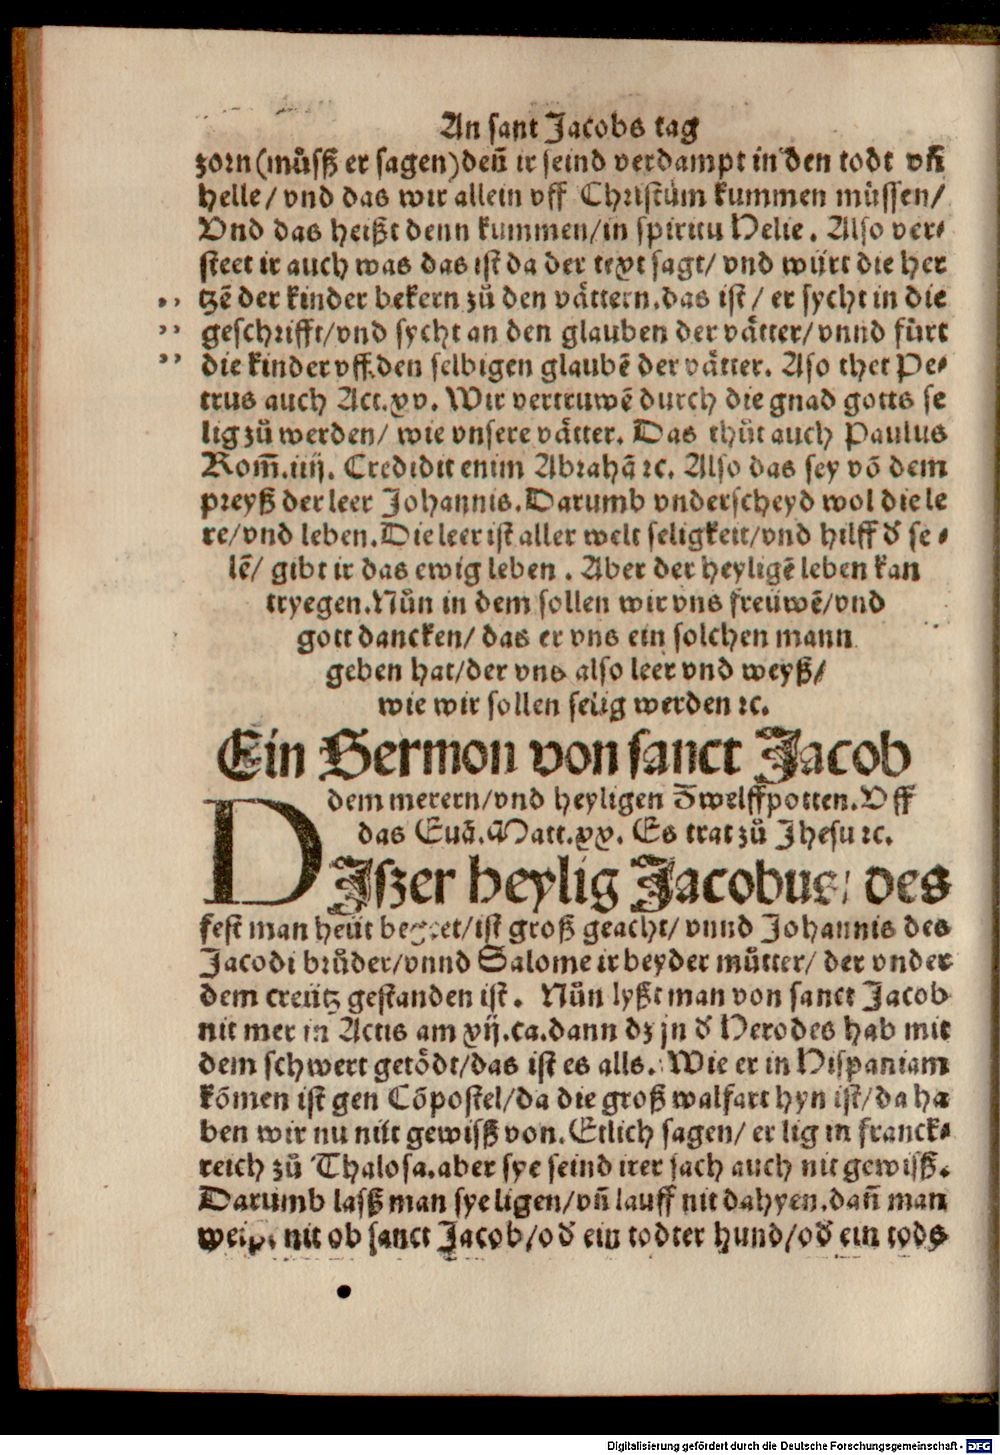 An sant Jacobs tag
zorn (můssz er sagen) deñ ir seind verdampt in den todt vñ
helle / vnd das wir allein vff Christum kummen müssen /
Vnd das heißt denn kummen / in spiritu Helie . Also ver⸗
steet ir auch was das ist da der text sagt / vnd würt die her
tzē der kinder bekern zů den vȧttern . das ist / er sycht in die
geschrifft / vnd sycht an den glauben der vȧtter / vnnd fürt
die kinder vff den selbigen glaubē der vȧtter . Aso thet Pe⸗
trus auch Act . xv . Wir vertruwē durch die gnad gotts se
lig zů werden / wie vnsere vȧtter . Das thůt auch Paulus
Rom̃ . iiij . Credidit enim Abrahā ꝛc . Also das sey vō dem
preyß der leer Johannis . Darumb vnderscheyd wol die le
re / vnd leben . Die leer ist aller welt seligkeit / vnd hilff d̓ se ⸗
lē / gibt ir das ewig leben . Aber der heyligē leben kan
tryegen . Nůn in dem sollen wir vns freuwē / vnd
gott dancken / das er vns ein solchen mann
geben hat / der vns also leer vnd weyß /
wie wir sollen selig werden ꝛc .
Ein Sermon von sanct Jacob
dem merern / vnd heyligen Zwelffpotten . Vff
das Euā . Matt . xx . Es trat zů Jhesu ꝛc .
DJszer heylig Jacobus / des
fest man heüt beget / ist groß geacht / vnnd Johannis des
Jacobi brůder / vnnd Salome ir beyder můtter / der vnder
dem creütz gestanden ist . Nůn lyßt man von sanct Jacob
nit mer in Actis am xij . ca . dann dz jn d̓ Herodes hab mit
dem schwert getödt / das ist es alls . Wie er in Hispaniam
kōmen ist gen Cōpostel / da die groß walfart hyn ist / da ha
ben wir nu nüt gewissz von . Etlich sagen / er lig in franck⸗
reich zů Tholosa . aber sye seind irer sach auch nit gewissz .
Darumb lassz man sye ligen / vñ lauff nit dahyen . dañ man
weißt nit ob sanct Jacob / od̓ ein todter hund / od̓ ein tods
Digitalisierung gefördert durch die Deutsche Forschungsgemeinschaft - DFG